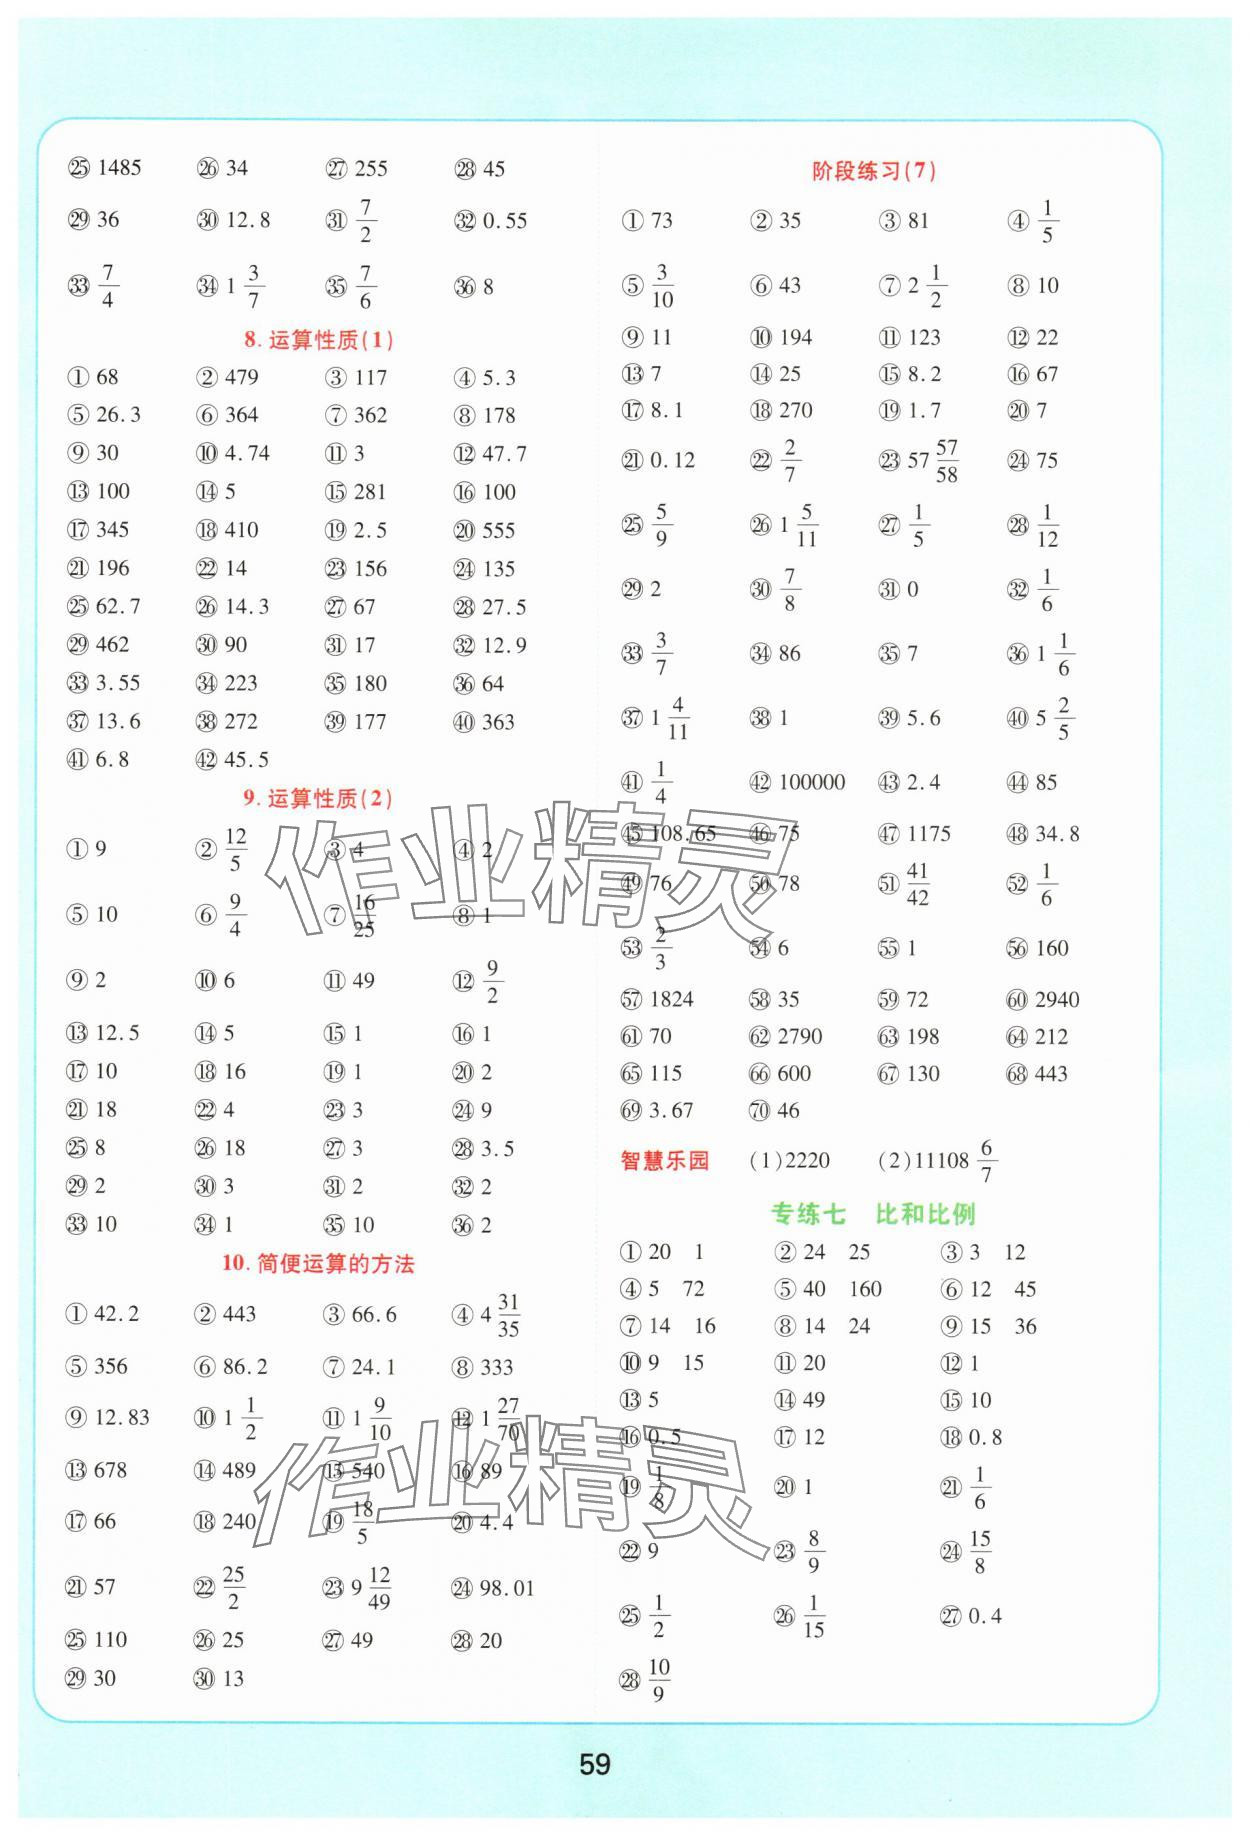 ㉕ 1485 ㉖ 34 ㉗ 255 ㉘ 45
㉙ 36 ㉚ 12.8 ㉛ 7/2 ㉜ 0.55
㉝ 7/4 ㉞ 1 3/7 ㉟ 7/6 ㊱ 8
8. 运算性质(1)
① 68 ② 479 ③ 117 ④ 5.3
⑤ 26.3 ⑥ 364 ⑦ 362 ⑧ 178
⑨ 30 ⑩ 4.74 ⑪ 3 ⑫ 47.7
⑬ 100 ⑭ 5 ⑮ 281 ⑯ 100
⑰ 345 ⑱ 410 ⑲ 2.5 ⑳ 555
㉑ 196 ㉒ 14 ㉓ 156 ㉔ 135
㉕ 62.7 ㉖ 14.3 ㉗ 67 ㉘ 27.5
㉙ 462 ㉚ 90 ㉛ 17 ㉜ 12.9
㉝ 3.55 ㉞ 223 ㉟ 180 ㊱ 64
㊲ 13.6 ㊳ 272 ㊴ 177 ㊵ 363
㊶ 6.8 ㊷ 45.5
9. 运算性质(2)
① 9 ② 12/5 ③ 4 ④ 2
⑤ 10 ⑥ 9/4 ⑦ 16/25 ⑧ 1
⑨ 2 ⑩ 6 ⑪ 49 ⑫ 9/2
⑬ 12.5 ⑭ 5 ⑮ 1 ⑯ 1
⑰ 10 ⑱ 16 ⑲ 1 ⑳ 2
㉑ 18 ㉒ 4 ㉓ 3 ㉔ 9
㉕ 8 ㉖ 18 ㉗ 3 ㉘ 3.5
㉙ 2 ㉚ 3 ㉛ 2 ㉜ 2
㉝ 10 ㉞ 1 ㉟ 10 ㊱ 2
10. 简便运算的方法
① 42.2 ② 443 ③ 66.6 ④ 4 31/35
⑤ 356 ⑥ 86.2 ⑦ 24.1 ⑧ 333
⑨ 12.83 ⑩ 1 1/2 ⑪ 1 9/10 ⑫ 1 27/70
⑬ 678 ⑭ 489 ⑮ 540 ⑯ 89
⑰ 66 ⑱ 240 ⑲ 18/5 ⑳ 4.4
㉑ 57 ㉒ 25/2 ㉓ 9 12/49 ㉔ 98.01
㉕ 110 ㉖ 25 ㉗ 49 ㉘ 20
㉙ 30 ㉚ 13
阶段练习(7)
① 73 ② 35 ③ 81 ④ 1/5
⑤ 3/10 ⑥ 43 ⑦ 2 1/2 ⑧ 10
⑨ 11 ⑩ 194 ⑪ 123 ⑫ 22
⑬ 7 ⑭ 25 ⑮ 8.2 ⑯ 67
⑰ 8.1 ⑱ 270 ⑲ 1.7 ⑳ 7
㉑ 0.12 ㉒ 2/7 ㉓ 57 57/58 ㉔ 75
㉕ 5/9 ㉖ 1 5/11 ㉗ 1/5 ㉘ 1/12
㉙ 2 ㉚ 7/8 ㉛ 0 ㉜ 1/6
㉝ 3/7 ㉞ 86 ㉟ 7 ㊱ 1 1/6
㊲ 1 4/11 ㊳ 1 ㊴ 5.6 ㊵ 5 2/5
㊶ 1/4 ㊷ 100000 ㊸ 2.4 ㊹ 85
㊺ 108.65 ㊻ 75 ㊼ 1175 ㊽ 34.8
㊾ 76 ㊿ 78 (51) 41/42 (52) 1/6
(53) 2/3 (54) 6 (55) 1 (56) 160
(57) 1824 (58) 35 (59) 72 (60) 2940
(61) 70 (62) 2790 (63) 198 (64) 212
(65) 115 (66) 600 (67) 130 (68) 443
(69) 3.67 (70) 46
智慧乐园 (1)2220 (2)11108 6/7
专练七 比和比例
① 20 1 ② 24 25 ③ 3 12
④ 5 72 ⑤ 40 160 ⑥ 12 45
⑦ 14 16 ⑧ 14 24 ⑨ 15 36
⑩ 9 15 ⑪ 20 ⑫ 1
⑬ 5 ⑭ 49 ⑮ 10
⑯ 0.5 ⑰ 12 ⑱ 0.8
⑲ 1/8 ⑳ 1 ㉑ 1/6
㉒ 9 ㉓ 8/9 ㉔ 15/8
㉕ 1/2 ㉖ 1/15 ㉗ 0.4
㉘ 10/9
作业精灵
作业精灵
59